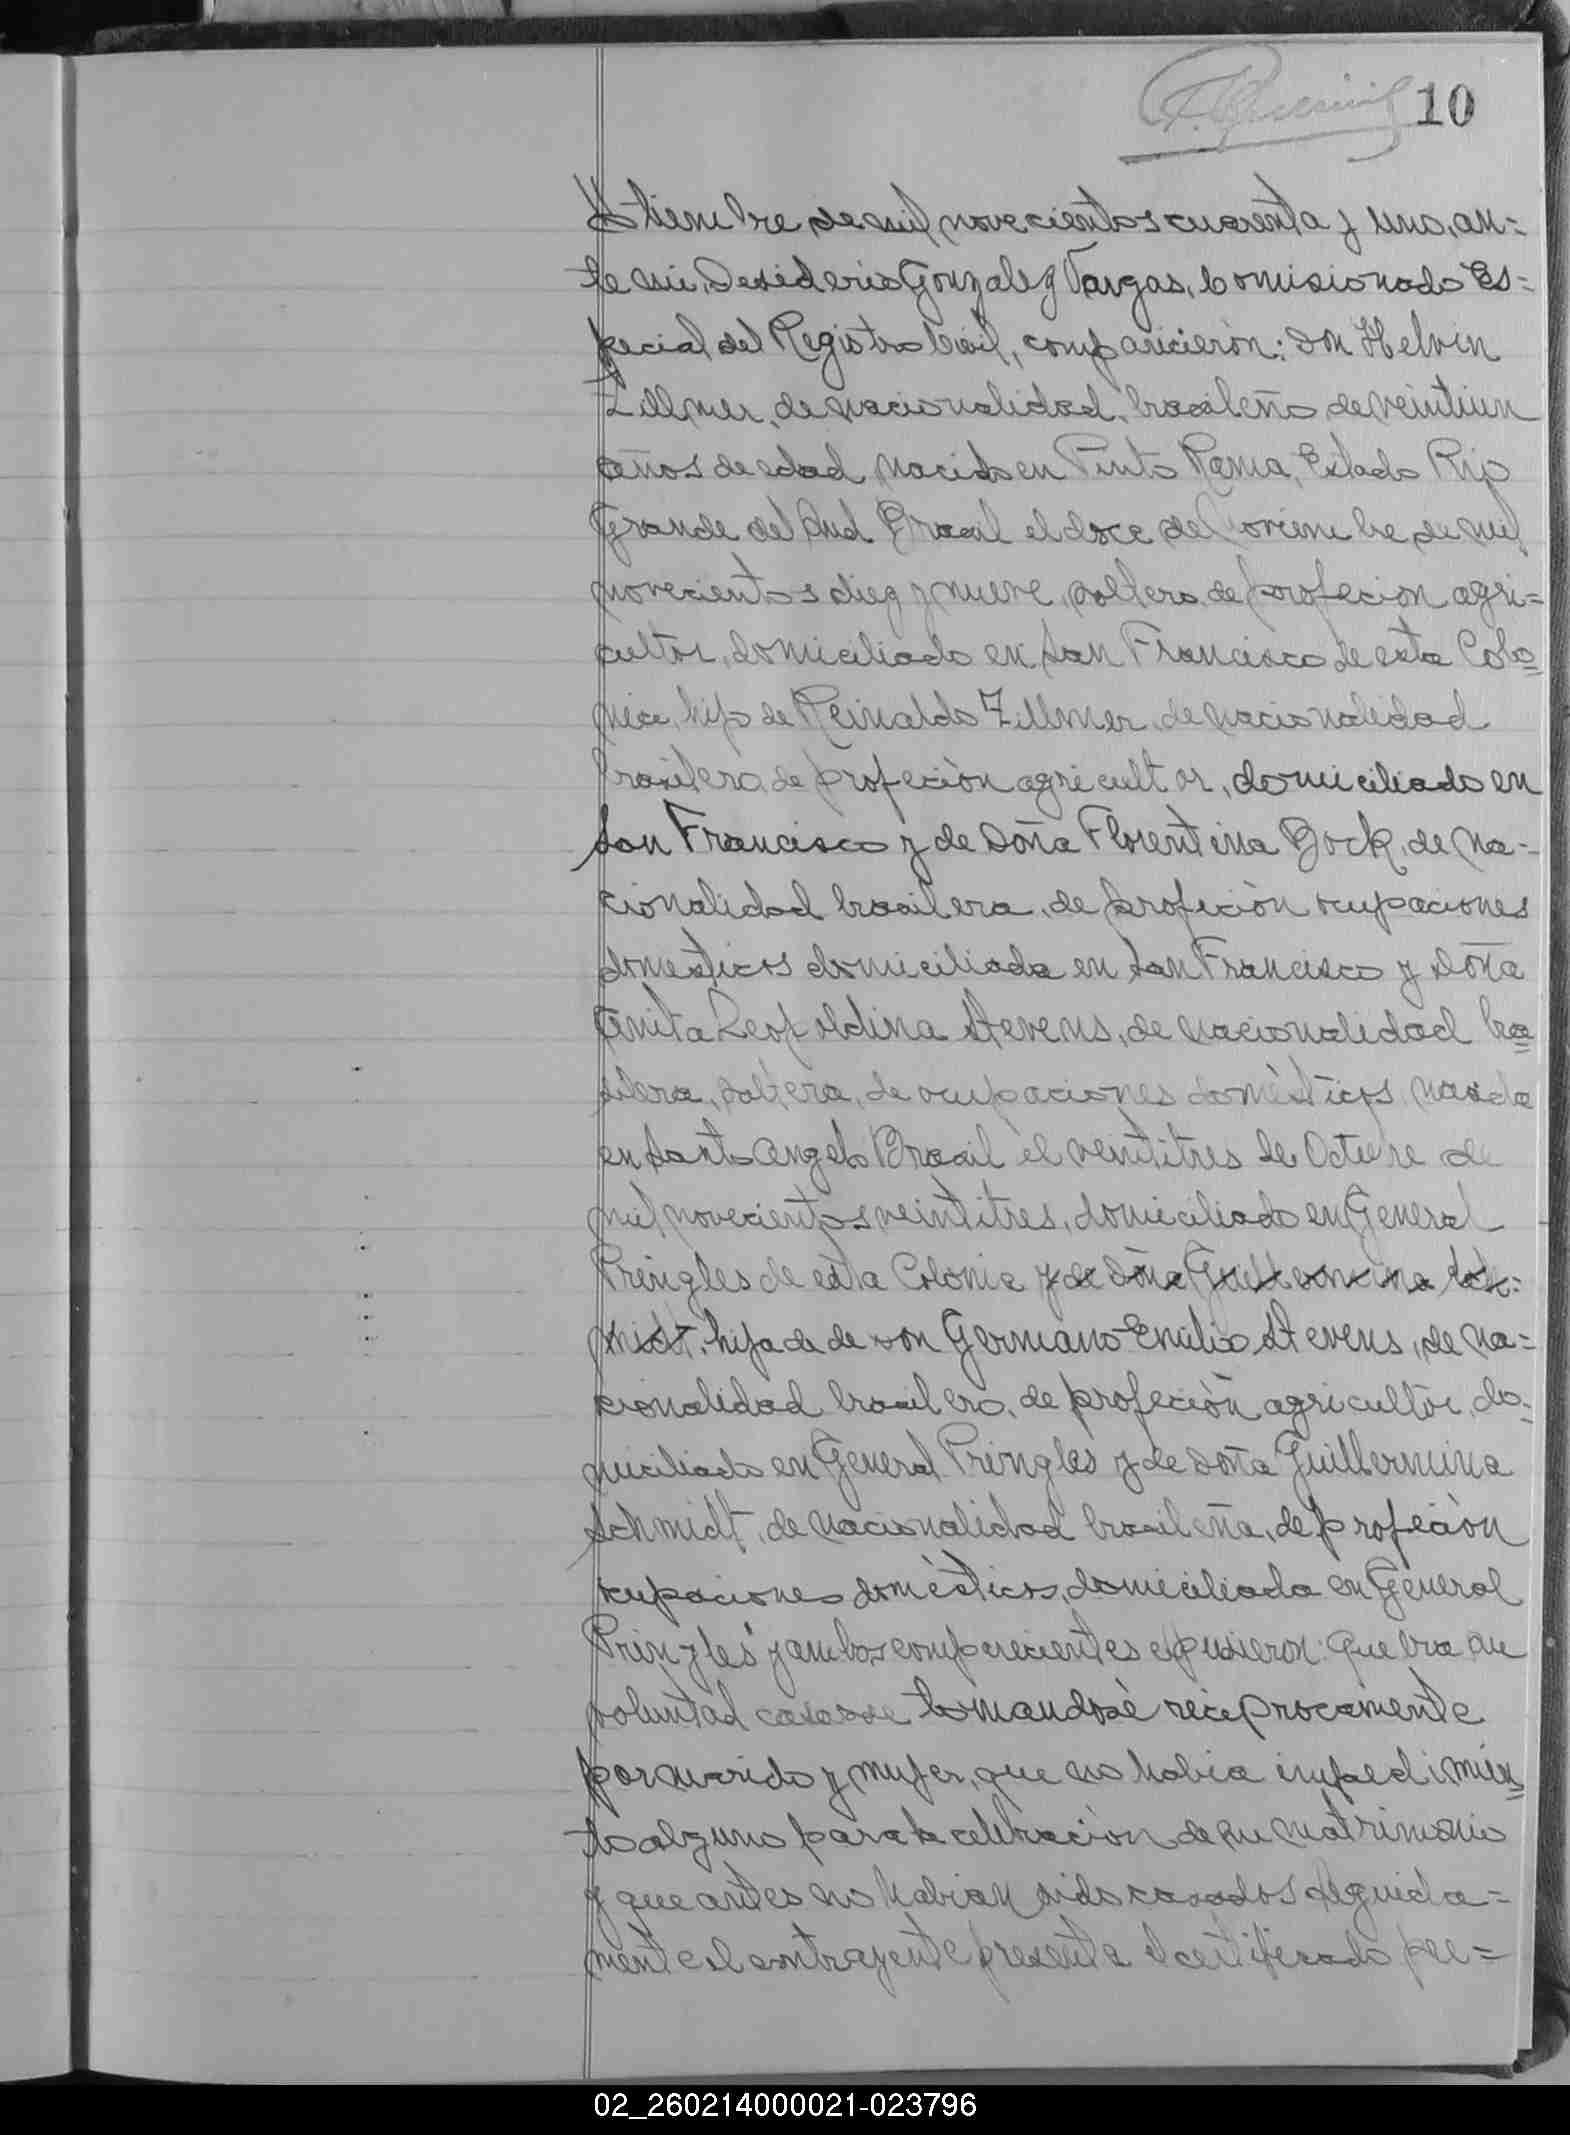 10
Setiembre de mil novecientos cuarenta y uno, an=
te mi, Desiderio Gonzalez Vargas, Comisionado Es=
pecial del Registro Civil, comparicieròn: don Helvin
Zillmer, de nacionalidad, brasileño de veintiun
años de edad nacido en Pinto Rama, Estado Rio
Grande del Sud Brasil el doce de Noviembre de mil
novecientos diez y nueve, soltero, de profecion agri=
cultor, domiciliado en San Francisco de esta Colo=
nia, hijo de Reinaldo Zillmer, de nacionalidad
brasilero, de profeciòn agricultor, domiciliado en
San Francisco y de doña Florentina Bock, de na=
cionalidad brasilera, de profeciòn ocupaciones
domesticos domiciliada en San Francisco y doña
Anita Leopoldina Stevens, de nacionalidad bra=
silera, soltera, de ocupaciones domèsticos, nacida
en Santo Angelo Brasil el veintitres de Octubre de
mil novecientos veintitres, domiciliado en General
Pringles de esta Colonia y de doña Guillermina Sch=
midt. hija de de don Germano Emilio Stevens, de na=
cionalidad brasilero, de profeciòn agricultor, do=
miciliado en General Pringles y de doña Guillermina
Schmidt, de nacionalidad brasileña, de profeciòn
ocupaciones domèsticos, domiciliada en General
Pringles y ambos comparecientes expusieron: que era su
voluntad casarse tomandosè reciprocamente
por marido y mujer, que no habia impedimien=
to alguno para la celebraciòn de su matrimonio
y que antes no habian sido casados Seguida=
mente el contrayente presenta el certificado pre=
02_260214000021-023796